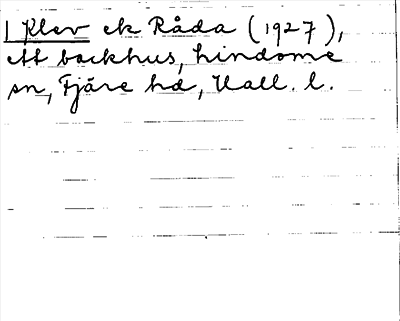 1 Klev ek Råda (1927),
ett backhus, Lindome
sn, Fjäre hd, Hall. l.